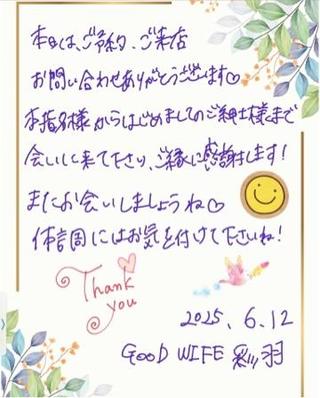 本日は、ご予約、ご来店
お問い合わせありがとうございます♡
本指名様からはじめましてのご紳士様まで
会いに来て下さり、ご縁に感謝します!
またお会いしましょうね♡
体調にはお気を付けて下さいね!
Thank you
2025.6.12
GOOD WIFE 彩羽